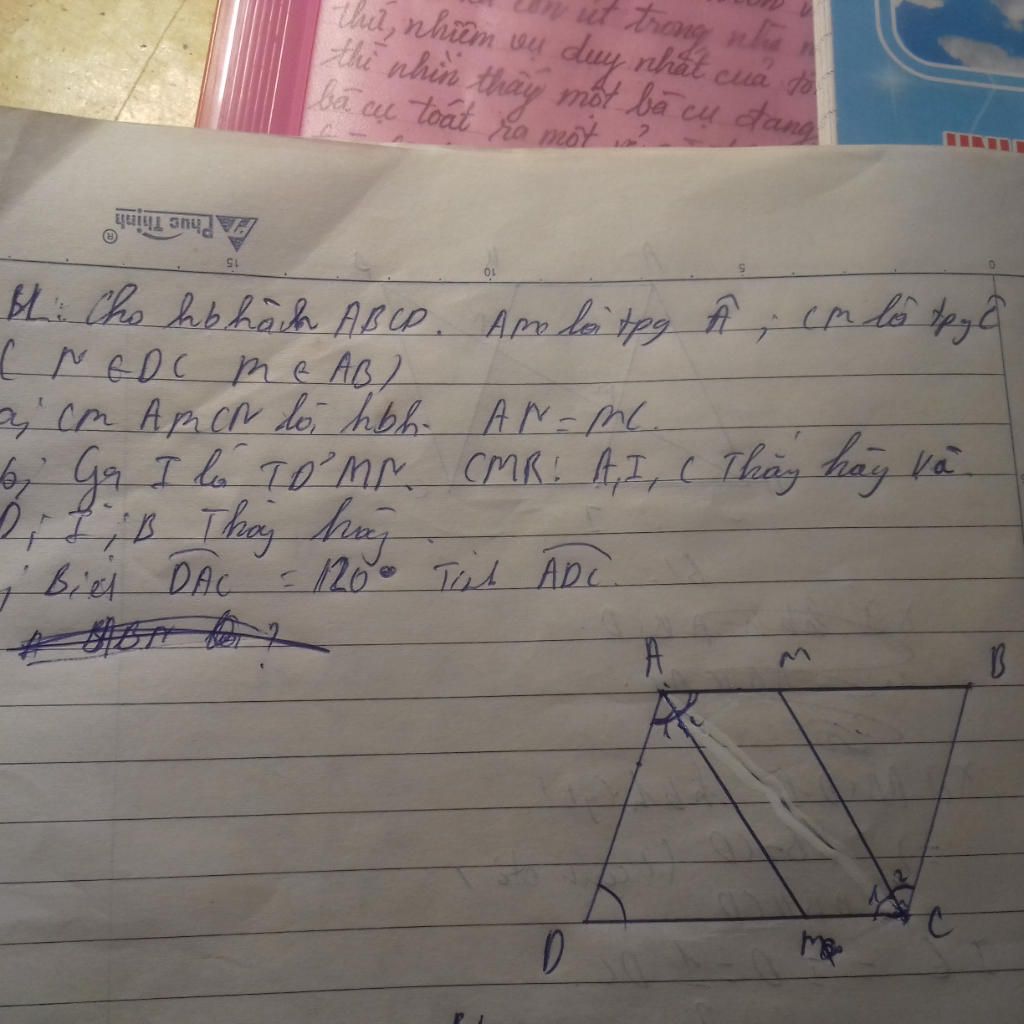 thứ, nhiệm vụ duy nhất của tô
thì nhìn thấy một bà cụ đang
bà cụ toát ra một
Phuc Thịnh ®
15 10 5 0
B1: Cho hbhành ABCD. AM là tpg Â; CM là tpg Ĉ
( N ∈ DC M ∈ AB)
a; CM AMCN là hbh. AN = MC.
b; Gọi I là TĐ' MN. CMR: A, I, C Thẳg hàg và
D; I; B Thảg hàg.
; Biết DAC = 120° Tính ADC.
A M B
1 2
1 2
D M C